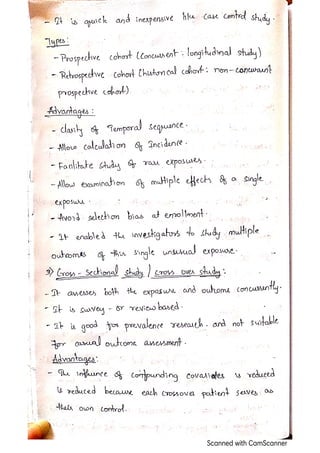 - It is quick and inexpensive like case control study.
Types:
- Prospective cohort (Concurrent; longitudinal study)
- Retrospective cohort (historical cohort; non-concurrent
prospective cohort)
Advantages:
- clarity of Temporal sequence.
- Allow calculation of Incidence.
- Facilitate study of rare exposures.
- Allow examination of multiple effects of a single
exposure.
- Avoid selection bias at enrollment.
- It enabled the investigators to study multiple
outcomes of this single unusual exposure.
3) Cross-Sectional study / cross over study:
- It assesses both the exposure and outcome concurrently.
- It is survey- or review based.
- It is good for prevalence research. and not suitable
for causal outcome assessment.
Advantages:
- The influence of confounding covariates is reduced
is reduced because each crossover patient serves as
their own control.
Scanned with CamScanner